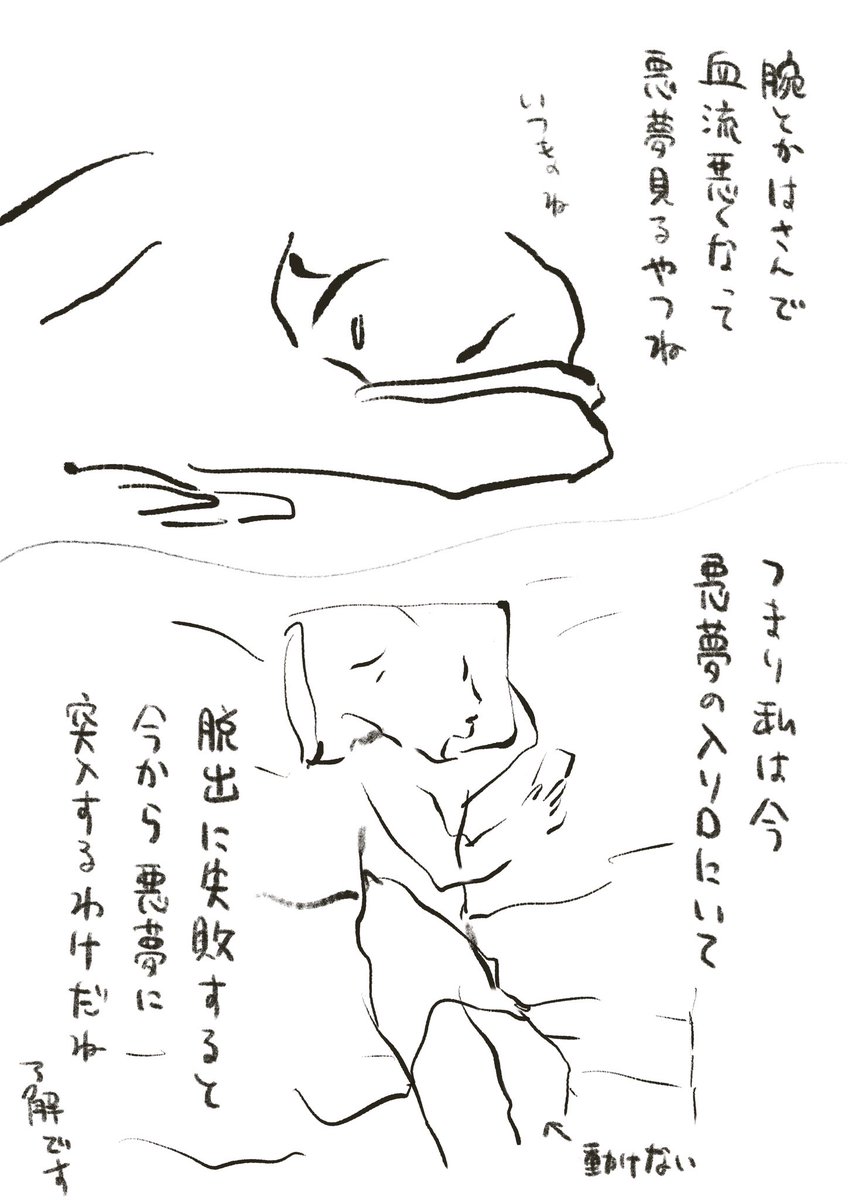 腕とかはさんで
血流悪くなって
悪夢見るやつね
いつものね
つまり私は今
悪夢の入り口にいて
脱出に失敗すると
今から悪夢に
突入するわけだね
了解です
動けない